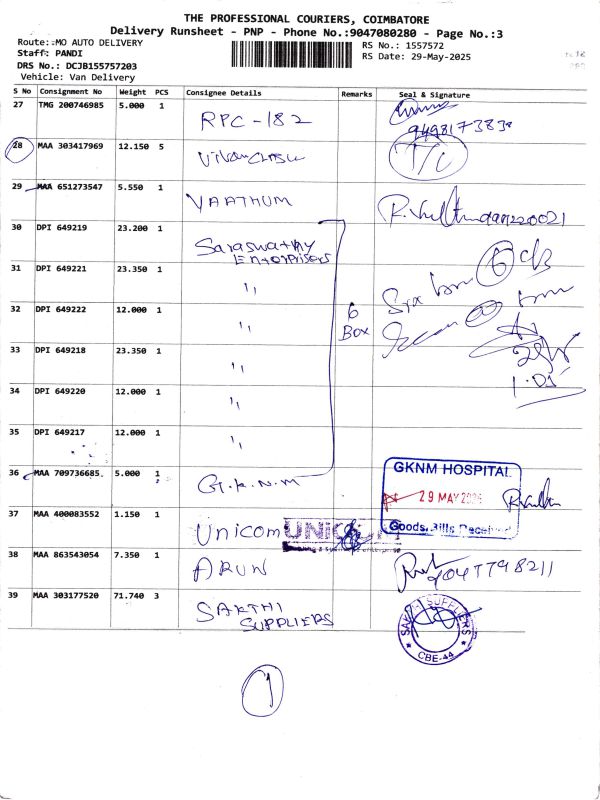 THE PROFESSIONAL COURIERS, COIMBATORE
Delivery Runsheet - PNP - Phone No.:9047080280 - Page No.:3
Route:-MO AUTO DELIVERY
Staff: PANDI
DRS No.: DCJB155757203
Vehicle: Van Delivery
RS No.: 1557572
RS Date: 29-May-2025
S No Consignment No Weight PCS Consignee Details Remarks Seal & Signature
27 TMG 200746985 5.000 1 RPC-182
28 MAA 303417969 12.150 5 T/C
29 MAA 651273547 5.550 1 VAATHUM
30 DPI 649219 23.200 1 Saraswathy
Enterprises
31 DPI 649221 23.350 1 ,,
32 DPI 649222 12.000 1 ,, 6
Box
33 DPI 649218 23.350 1 ,,
34 DPI 649220 12.000 1 ,,
35 DPI 649217 12.000 1 ,,
36 MAA 709736685 5.000 1 G.K.N.M
GKNM HOSPITAL
29 MAY 2025
Goods, Bills Received
37 MAA 400083552 1.150 1 Unicom
38 MAA 863543054 7.350 1 ARUN
39 MAA 303177520 71.740 3 SAKTHI
SUPPLIERS
SAKTHI SUPPLIERS
CBE-44
1